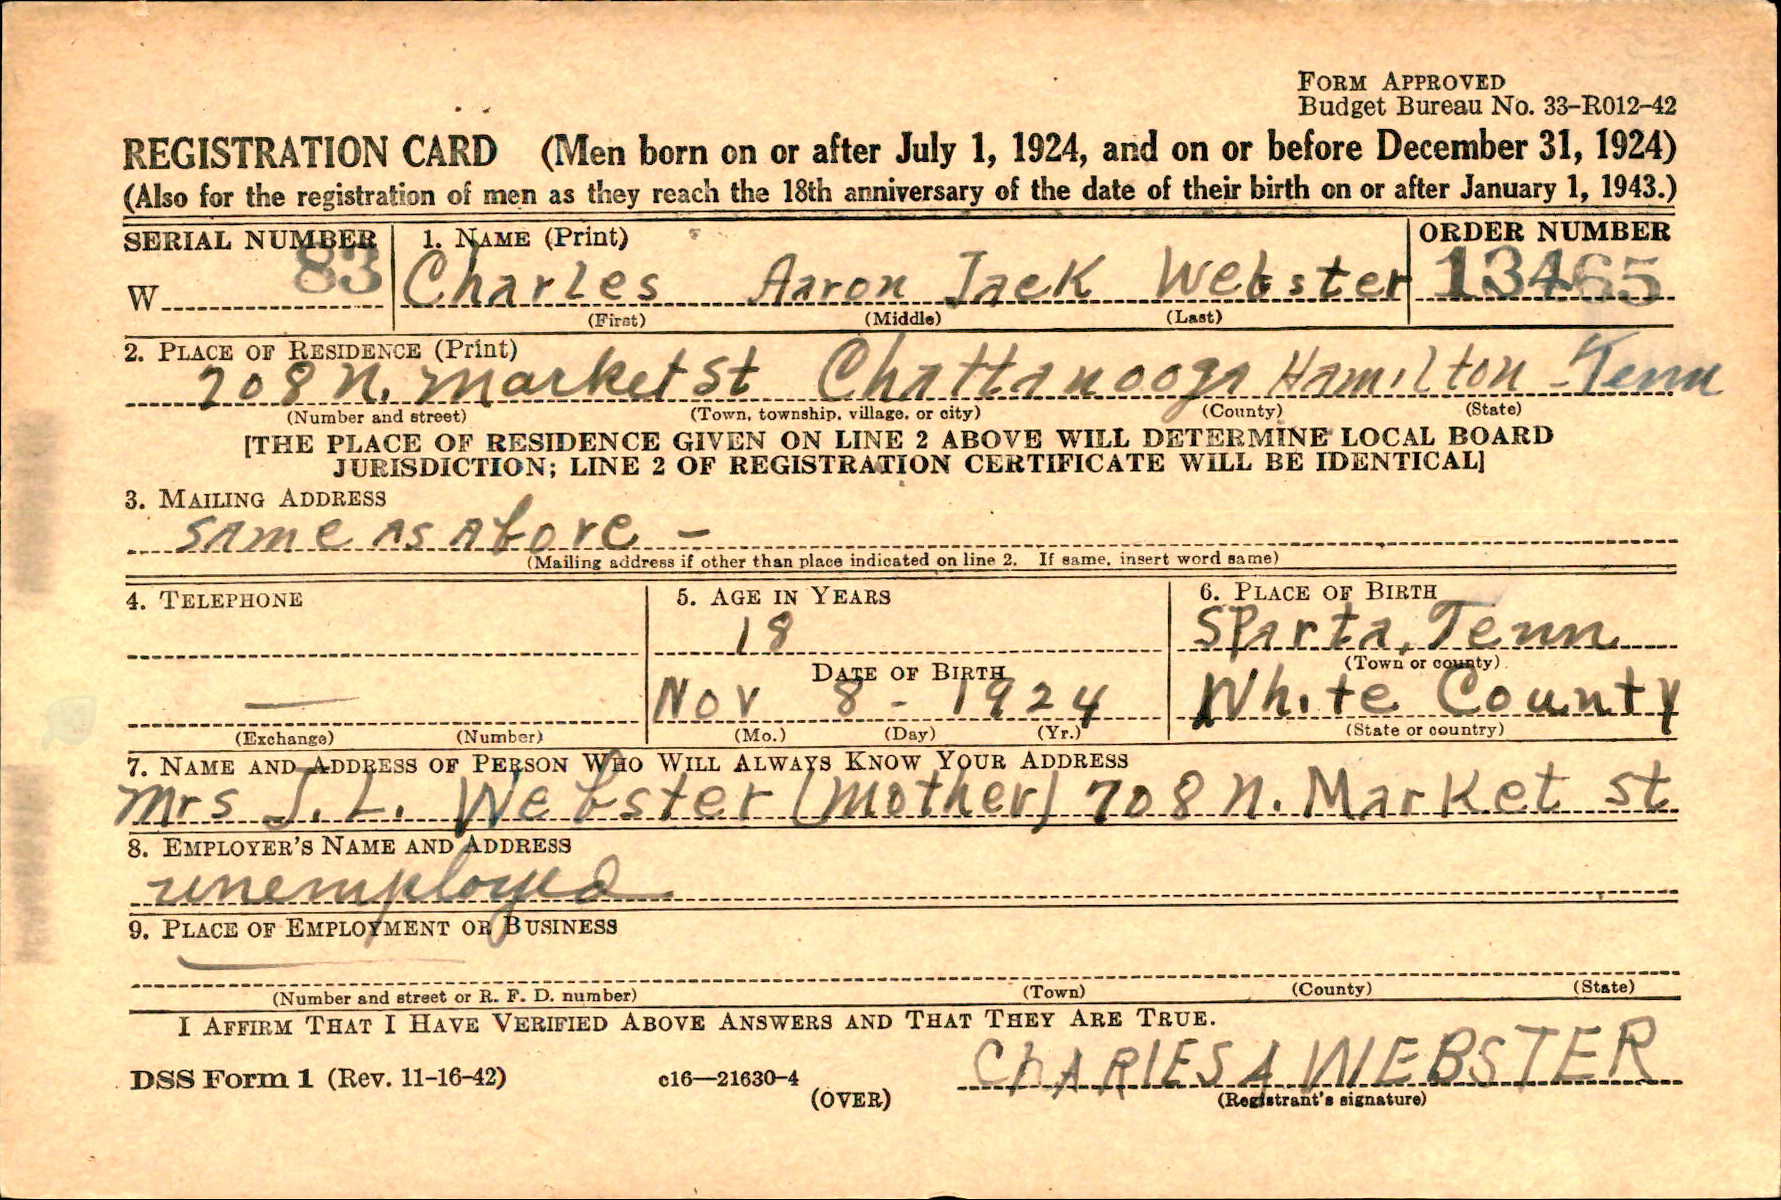 FORM APPROVED
Budget Bureau No. 33-R012-42
REGISTRATION CARD (Men born on or after July 1, 1924, and on or before December 31, 1924)
(Also for the registration of men as they reach the 18th anniversary of the date of their birth on or after January 1, 1943.)
SERIAL NUMBER 1. NAME (Print) ORDER NUMBER
W 83 Charles Aaron Jack Webster 13465
(First) (Middle) (Last)
2. PLACE OF RESIDENCE (Print)
708 N. Market St Chattanooga Hamilton - Tenn
(Number and street) (Town, township, village, or city) (County) (State)
[THE PLACE OF RESIDENCE GIVEN ON LINE 2 ABOVE WILL DETERMINE LOCAL BOARD
JURISDICTION; LINE 2 OF REGISTRATION CERTIFICATE WILL BE IDENTICAL]
3. MAILING ADDRESS
Same as above -
(Mailing address if other than place indicated on line 2. If same, insert word same)
4. TELEPHONE 5. AGE IN YEARS 6. PLACE OF BIRTH
18 Sparta, Tenn
DATE OF BIRTH (Town or county)
— Nov 8 - 1924 White County
(Exchange) (Number) (Mo.) (Day) (Yr.) (State or country)
7. NAME AND ADDRESS OF PERSON WHO WILL ALWAYS KNOW YOUR ADDRESS
Mrs J. L. Webster (Mother) 708 N. Market St
8. EMPLOYER'S NAME AND ADDRESS
unemployed
9. PLACE OF EMPLOYMENT OR BUSINESS
(Number and street or R. F. D. number) (Town) (County) (State)
I AFFIRM THAT I HAVE VERIFIED ABOVE ANSWERS AND THAT THEY ARE TRUE.
DSS Form 1 (Rev. 11-16-42) c16—21630-4 (OVER) ChARlES A WEBSTER
(Registrant's signature)